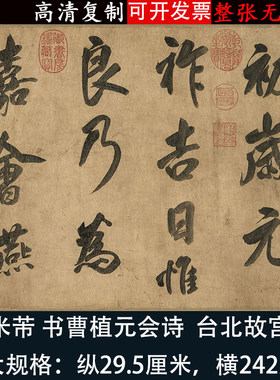 高清复制 可开发票 整张无
初歲元
祚吉日惟
良乃為
嘉會燕
米蒂 书曹植元会诗 台北故宫
大规格：纵29.5厘米，横242